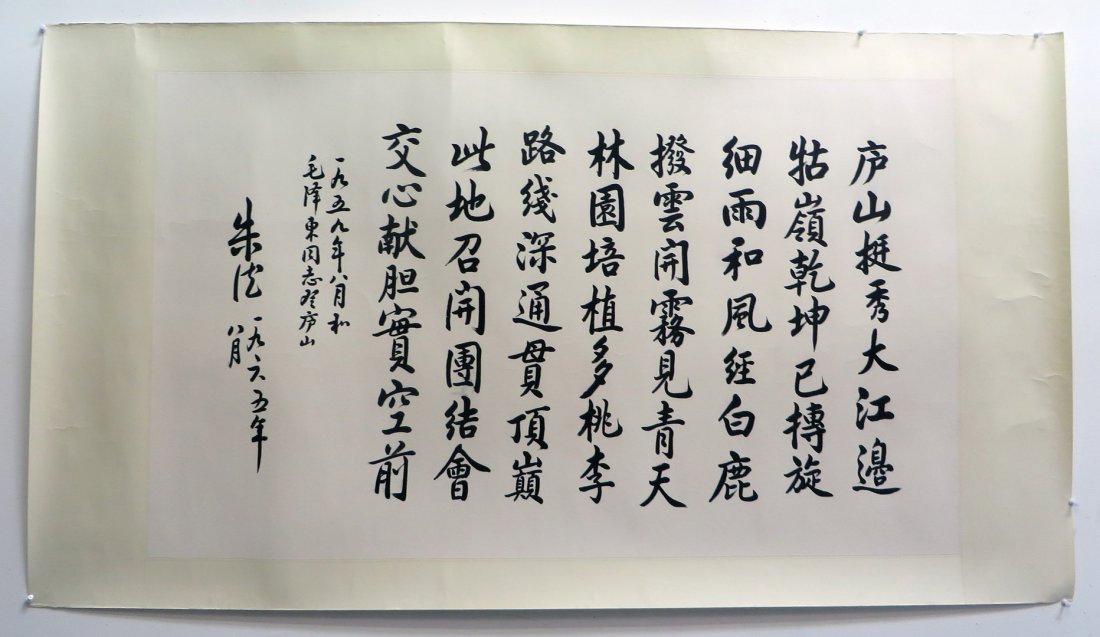 庐山挺秀大江邊
牯嶺乾坤已摶旋
細雨和風經白鹿
撥雲開霧見青天
林園培植多桃李
路綫深通貫頂巔
此地召開團结會
交心献胆實空前
一九五九年八月和
毛泽东同志登庐山
朱德 一九六五年
八月